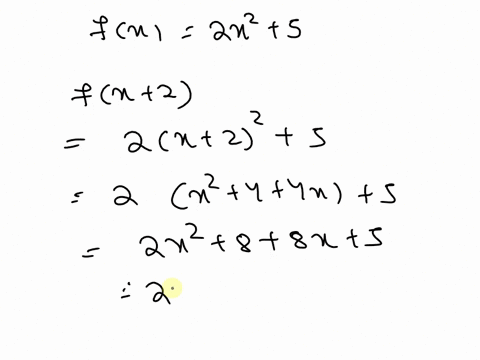 f(x) = 2x² + 5
f(x+2)
= 2(x+2)² + 5
= 2 (x²+4+4x) + 5
= 2x² + 8 + 8x + 5
= 2